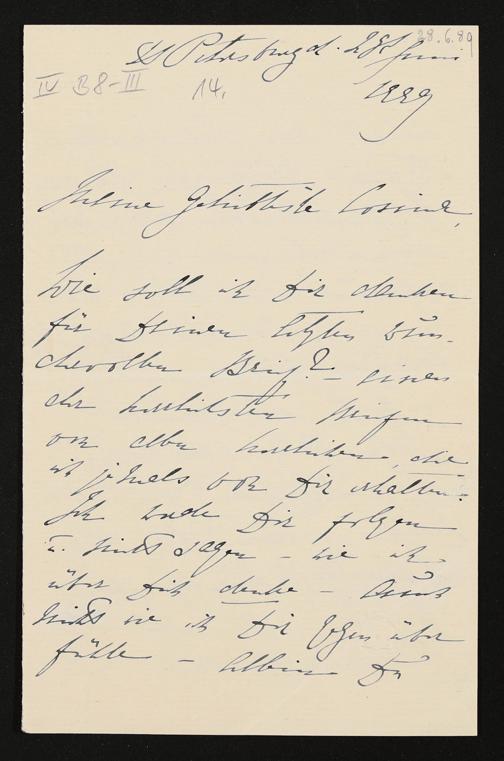 28.6.89
St Petersburg d. 28t Juni
1889
IV B8-III 14.
Meine Geliebteste Cosima,
Wie soll ich Dir danken
für Deinen letzten wun-
dervollen Brief? – einen
der herrlichsten
von allen herrlichen, die
ich jemals von Dir erhalten.
Ich werde Dir folgen
u. nichts sagen – wie ich
über Dich denke – auch
nichts wie ich Dir gegenüber
fühle – allein Du